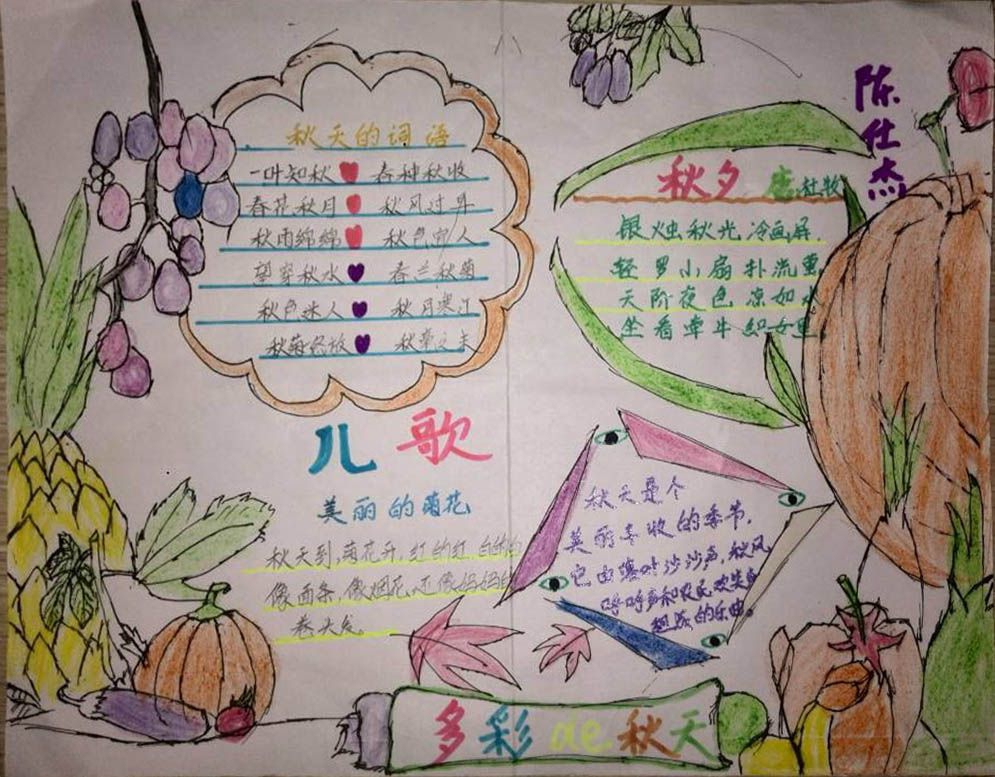 秋天的词语
一叶知秋 春种秋收
春花秋月 秋风过耳
秋雨绵绵 秋色宜人
望穿秋水 春兰秋菊
秋色迷人 秋月寒江
秋菊怒放
陈仕杰
秋夕 唐 杜牧
银烛秋光冷画屏
轻罗小扇扑流萤
天阶夜色凉如水
坐看牵牛织女星
儿歌
美丽的菊花
秋天到,菊花开,红的红 白的白
像面条,像烟花,还像妈妈的
卷头发
秋天是个
美丽丰收的季节,
它由落叶沙沙声,秋风
呼呼声和农民欢笑声
组成的乐曲。
多彩de秋天